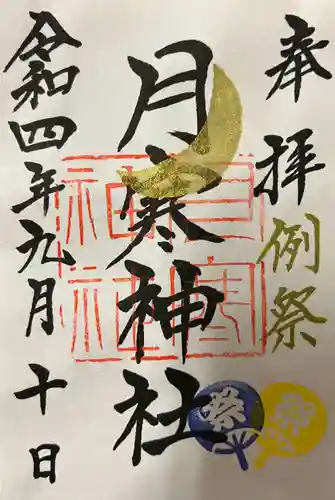 奉拝
例祭
月寒神社
月寒神社
令和四年九月十日
祭